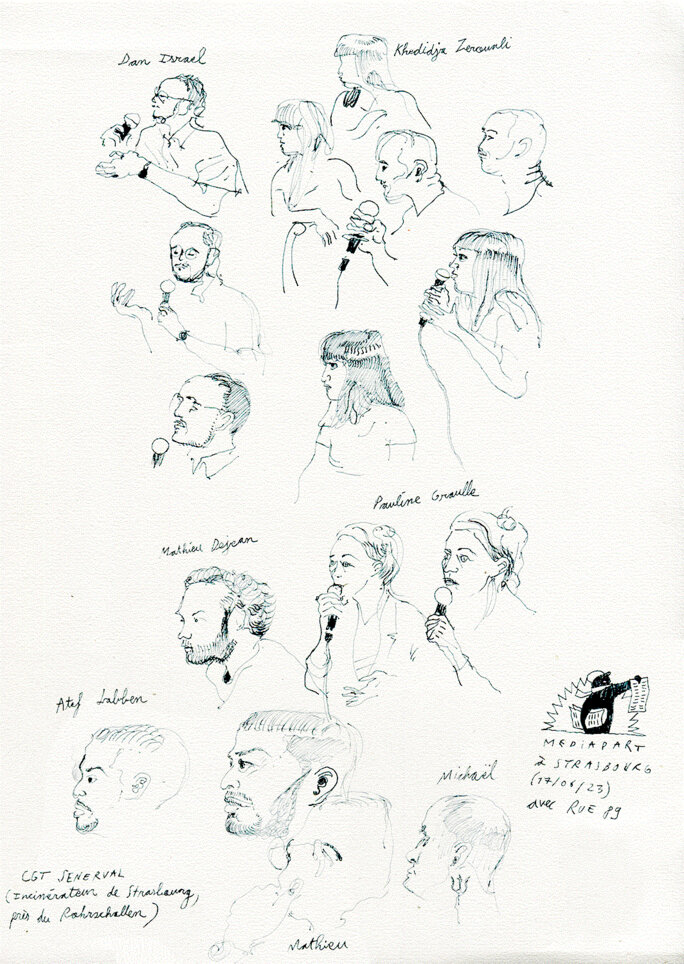 Dan Israel
Khedidja Zerouali
Pauline Graulle
Mathieu Dejean
Atef Labben
MEDIAPART
à STRASBOURG
(17/06/23)
avec RUE 89
Michaël
CGT SENERVAL
(Incinérateur de Strasbourg,
près du Rohrschollen)
Mathieu